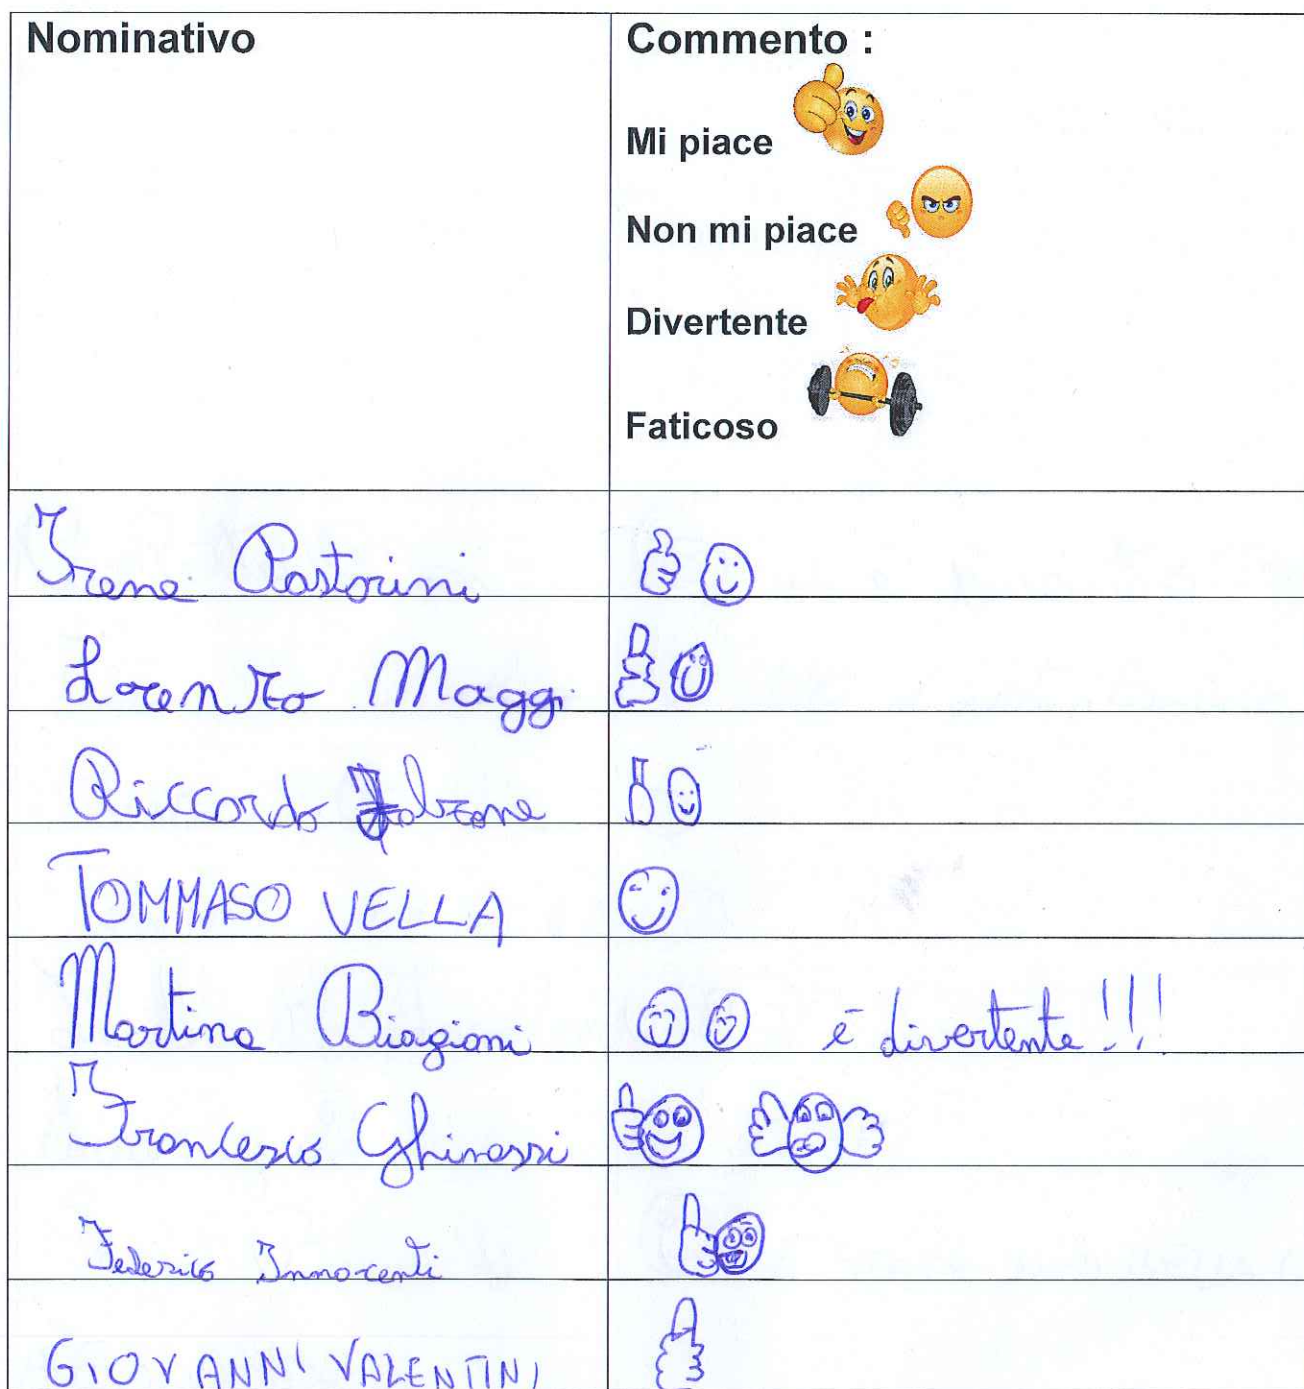 Nominativo
Commento :
Mi piace
Non mi piace
Divertente
Faticoso
Irene Pastorini
Lorenzo Maggi
Riccardo
TOMMASO VELLA
Martina Biagioni
è divertente!!!
Francesco Ghinassi
Federico Innocenti
GIOVANNI VALENTINI